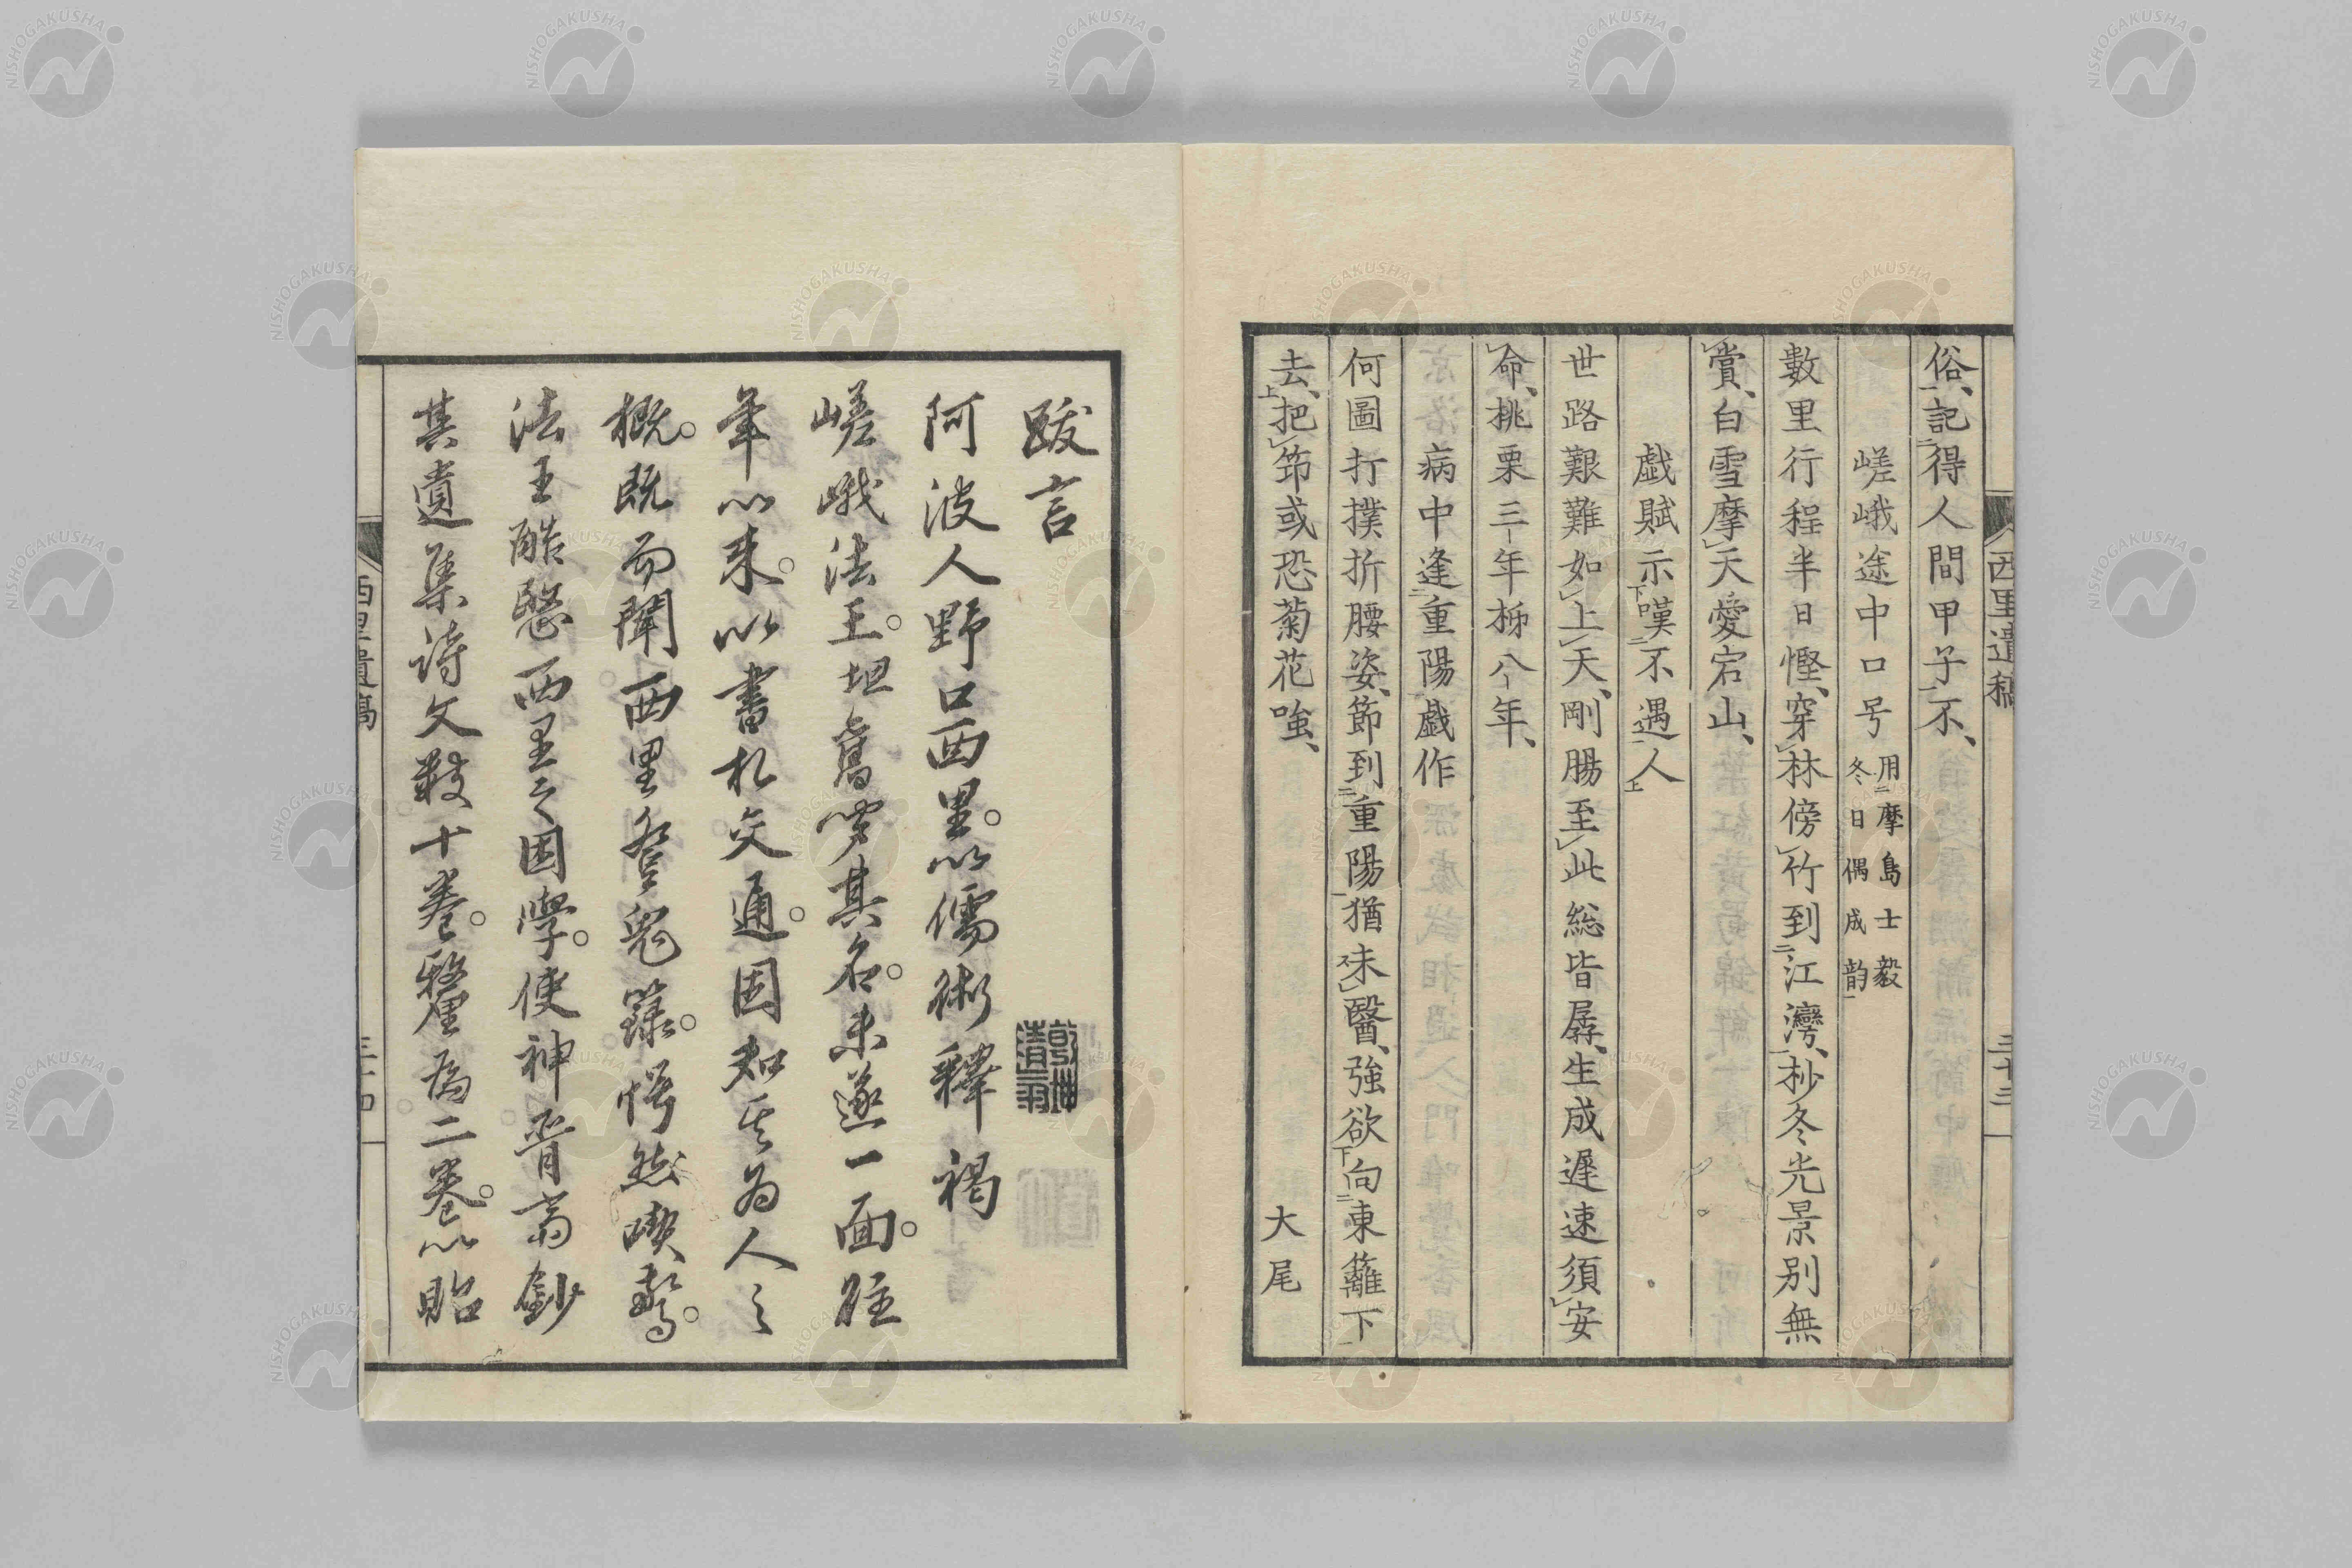 西里遺稿
三十三
俗、記得人間甲子不、
嵯峨途中口号 用摩島士毅
冬日偶成韵
數里行程半日慳、穿林傍竹到江灣、杪冬光景別無
賞、白雪摩天愛宕山、
戯賦示嘆不遇人
世路艱難如上天、剛腸至此総皆孱、生成遅速須安
命、桃栗三年柹八年、
病中逢重陽戯作
何圖打撲折腰姿、節到重陽猶未醫、強欲向東籬下
去、把筇或恐菊花嗤、
大尾
跋言
阿波人野口西里。以儒術釋褐
嵯峨法王。坦舊聞其名。未遂一面。往
年以来。以書札交通。因知其為人之
概。既而聞西里登鬼籙。愕然喫驚。
法王酷愍西里之困學。使神晋斎鈔
其遺集詩文數十卷。釐為二卷。以貽
西里遺稿
三十四
NISHOGAKUSHA